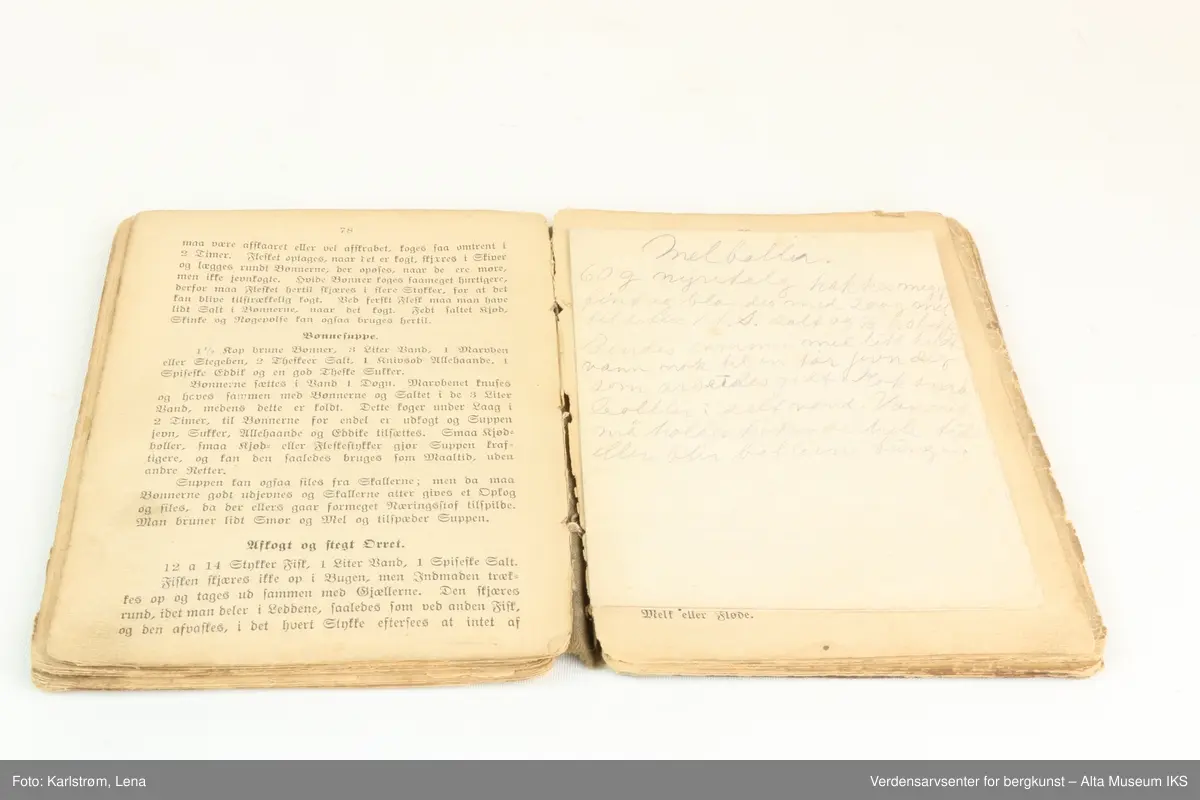 78
maa være afskaaret eller vel afskrabet, koges saa omtrent i
2 Timer. Flesket optages, naar det er kogt, skjæres i Skiver
og lægges rundt Bønnerne, der opøses, naar de ere møre,
men ikke jevnkogte. Hvide Bønner koges saameget hurtigere,
derfor maa Flesket hertil skjæres i flere Stykker, for at det
kan blive tilstrækkelig kogt. Ved ferskt Flesk maa man have
lidt Salt i Bønnerne, naar det kogt. Fedt saltet Kjød,
Skinke og Røgepølse kan ogsaa bruges hertil.
Bønnesuppe.
1½ Kop brune Bønner, 3 Liter Vand, 1 Marvben
eller Stegeben, 2 Theskeer Salt, 1 Knivsod Allehaande, 1
Spiseske Eddik og en god Theske Sukker.
Bønnerne sættes i Vand 1 Døgn. Marvbenet knuses
og haves sammen med Bønnerne og Saltet i de 3 Liter
Vand, medens dette er koldt. Dette koger under Laag i
2 Timer, til Bønnerne for endel er udkogt og Suppen
jevn, Sukker, Allehaande og Eddike tilsættes. Smaa Kjød-
boller, smaa Kjød- eller Fleskestykker gjør Suppen kraf-
tigere, og kan den saaledes bruges som Maaltid, uden
andre Retter.
Suppen kan ogsaa siles fra Skallerne; men da maa
Bønnerne godt udjevnes og Skallerne atter gives et Opkog
og siles, da der ellers gaar formeget Næringsstof tilspilde.
Man bruner lidt Smør og Mel og tilspæder Suppen.
Afkogt og stegt Ørret.
12 a 14 Stykker Fisk, 1 Liter Vand, 1 Spiseske Salt.
Fisken skjæres ikke op i Bugen, men Indmaden træk-
kes op og tages ud sammen med Gjællerne. Den skjæres
rund, idet man deler i Leddene, saaledes som ved anden Fisk,
og den afvaskes, i det hvert Stykke efterseees at intet af
Melboller.
60 g nyretalg hakkes meget
fint og blandes med 200 g mel
S. salt og
sammen med litt
vann
som
boller i saltvand
må
eller blir bollene
Melk eller Fløde.
Foto: Karlstrøm, Lena
Verdensarvsenter for bergkunst – Alta Museum IKS